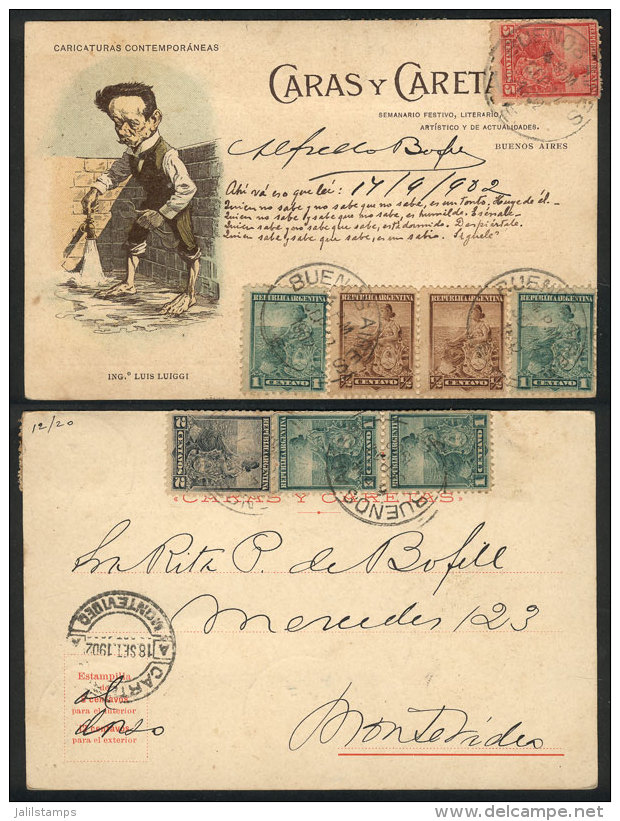 CARICATURAS CONTEMPORÁNEAS
CARAS Y CARET
SEMANARIO FESTIVO, LITERARIO,
ARTÍSTICO Y DE ACTUALIDADES.
BUENOS AIRES
REPUBLICA ARGENTINA
5 CENTAVOS 5
Alfredo
Ahí vá eso que leí: 17/9/902
Quien no sabe y no sabe que no sabe, es un tonto. Huye de él.—
Quien no sabe y sabe que no sabe, es humilde. Enséñale.—
Quien sabe y no sabe que sabe, está dormido. Despiértale.
Quien sabe y sabe que sabe, es un sabio. Síguele
BUENOS AIRES
REPUBLICA ARGENTINA
1 CENTAVO 1
REPUBLICA ARGENTINA
½ CENTAVO ½
REPUBLICA ARGENTINA
½ CENTAVO ½
REPUBLICA ARGENTINA
1 CENTAVO 1
BUENOS
ING.º LUIS LUIGGI
12/20
REPUBLICA ARGENTINA
2 CENTAVOS 2
REPUBLICA ARGENTINA
1 CENTAVO 1
1
BUENOS
«CARAS Y CARETAS»
Sra Rita P. de Bofill
Mercedes 123
MONTEVIDEO
18 SET. 1902
CART
Estampilla
de
centavos
para el interior
centavos
para el exterior
al
dorso
Montevideo
Jalilstamps
www.delcampe.net